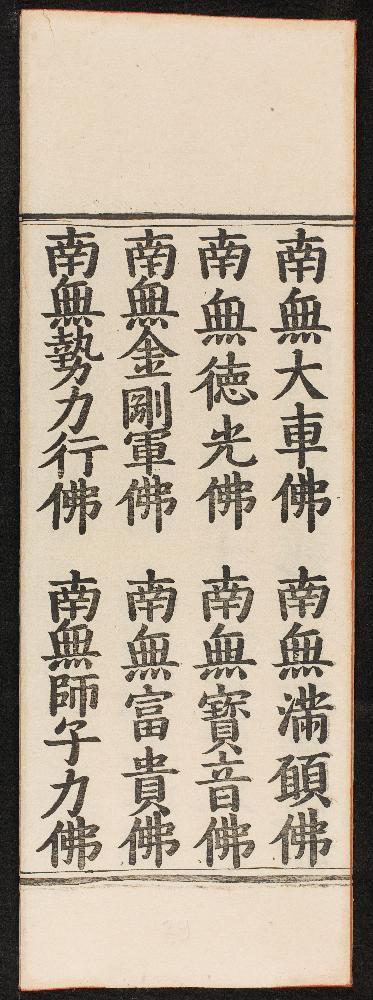 南無大車佛
南無滿願佛
南無德光佛
南無寶音佛
南無金剛軍佛
南無富貴佛
南無勢力行佛
南無師子力佛